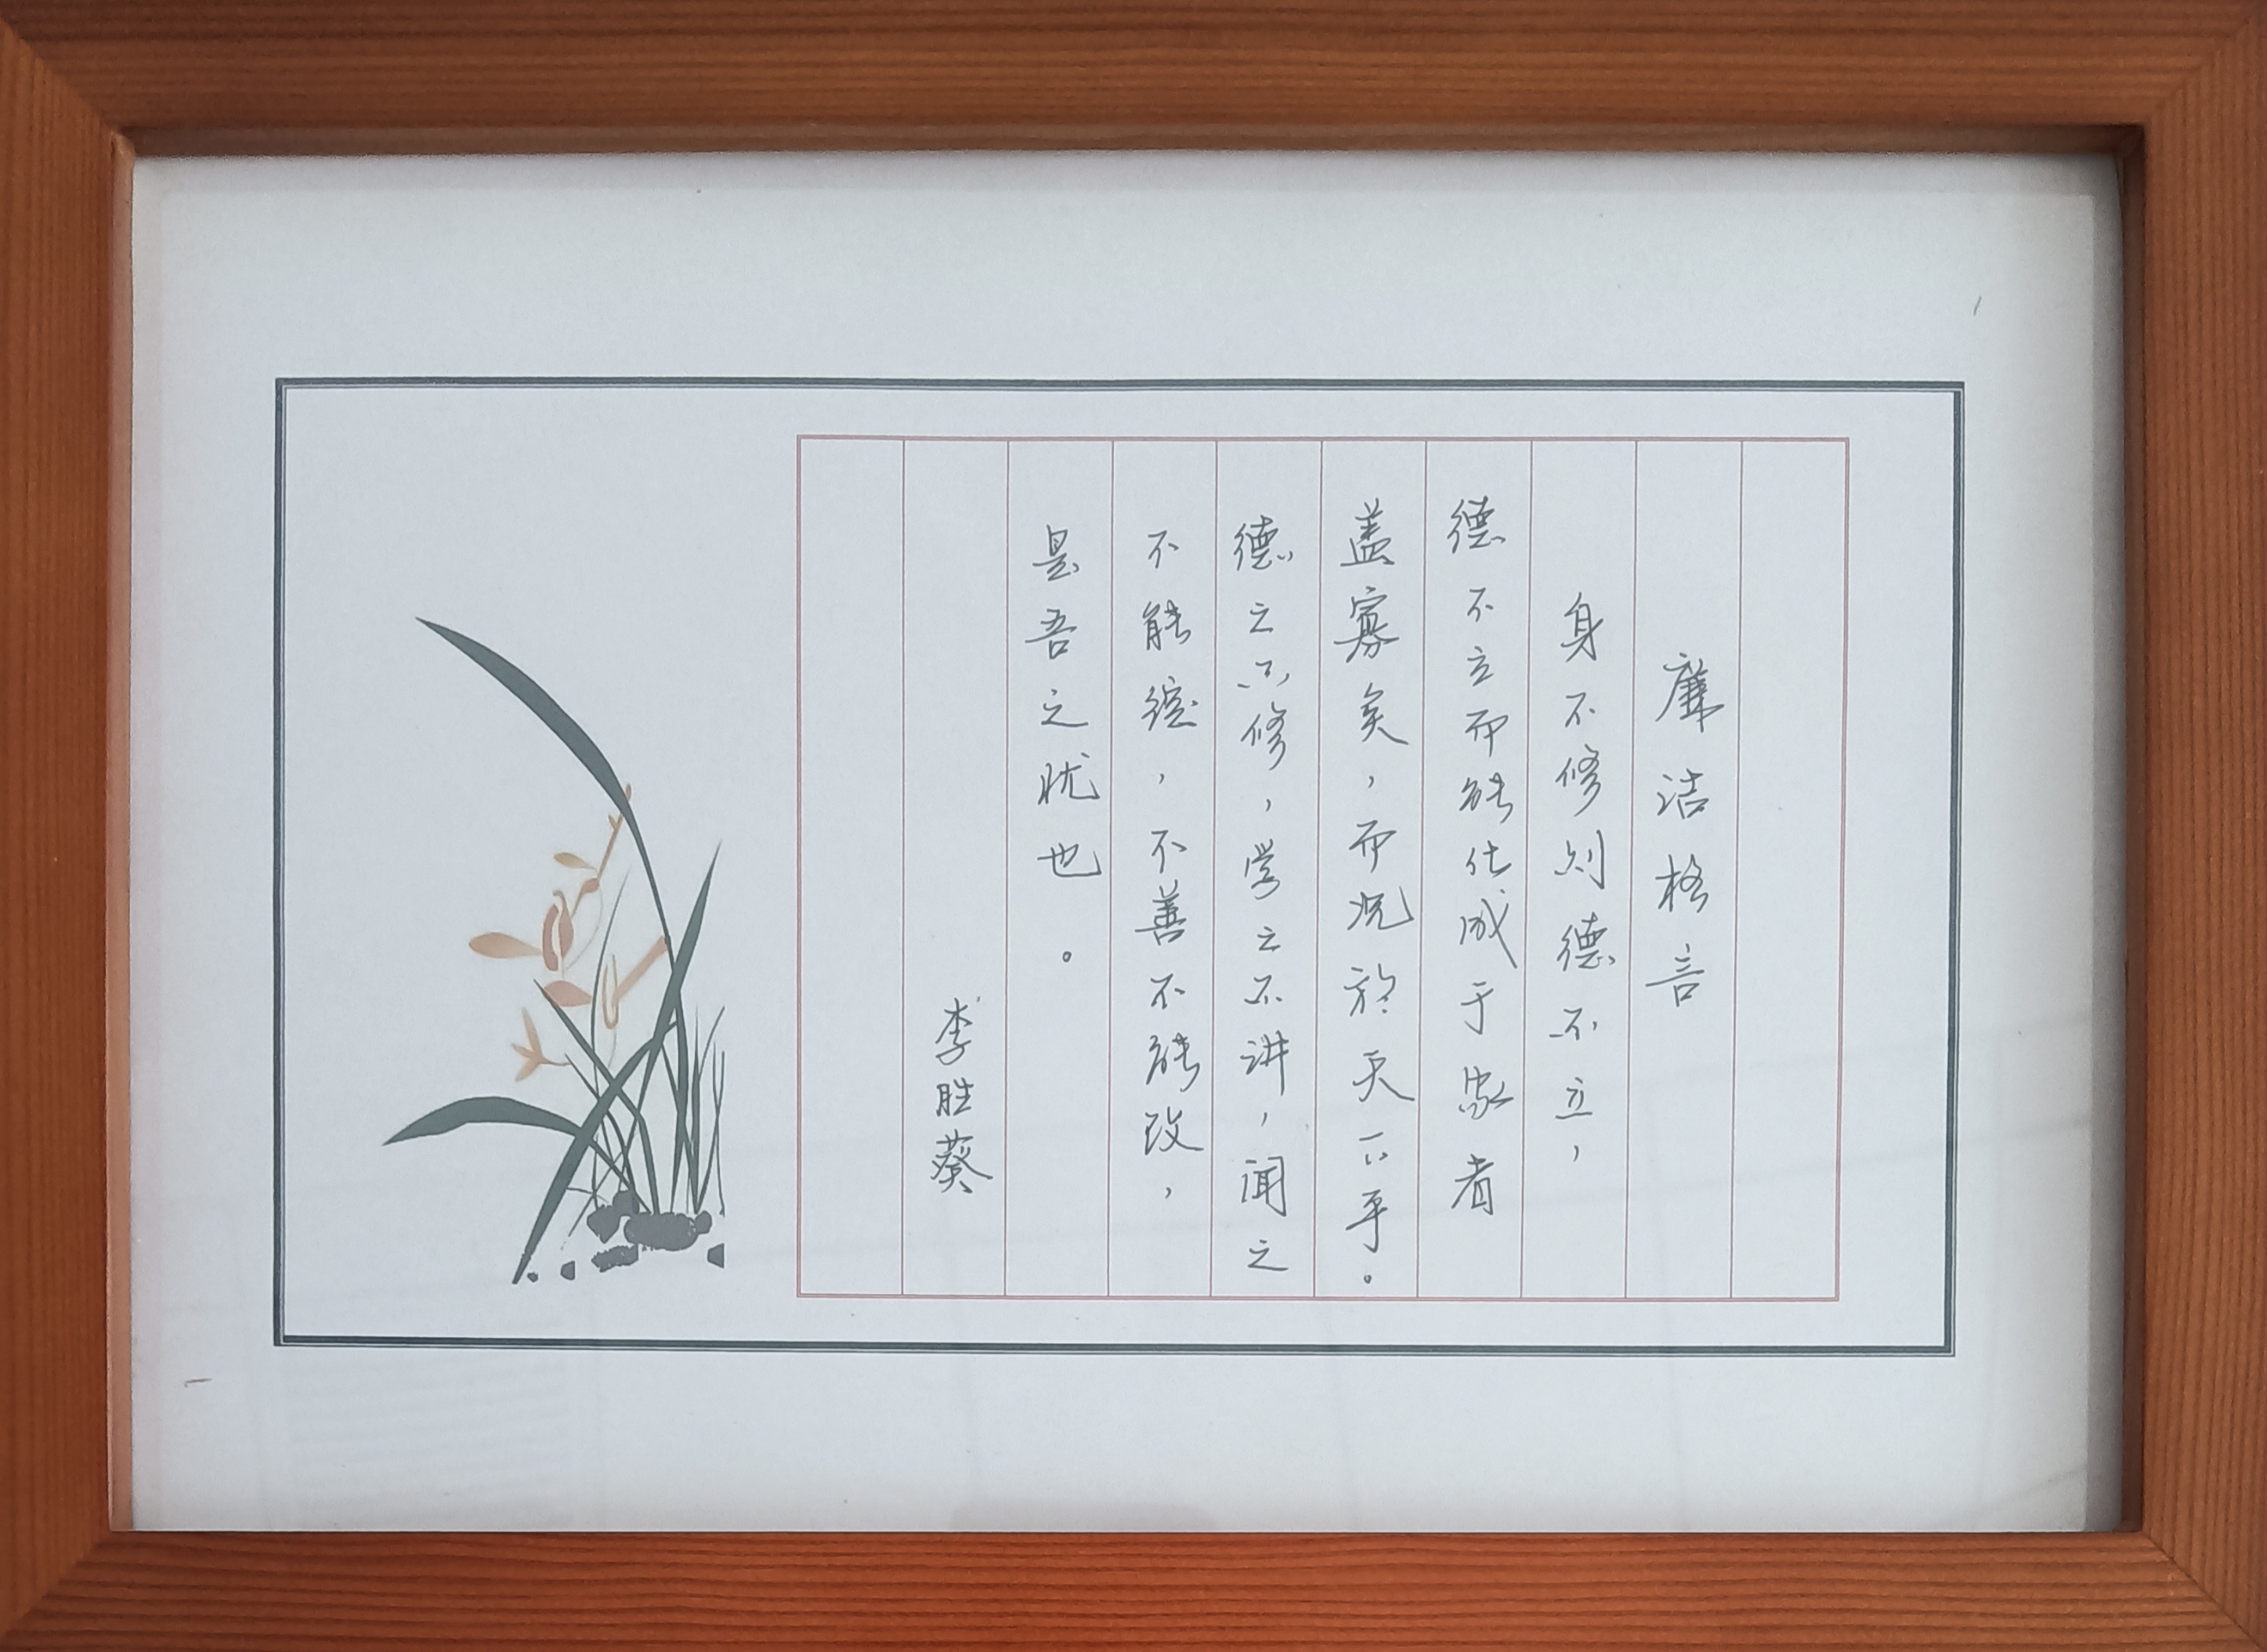 廉洁格言
身不修则德不立，
德不立而能化成于家者
盖寡矣，而况於天下乎。
德之不修，学之不讲，闻之
不能，不善不能改，
是吾之忧也。
李胜葵